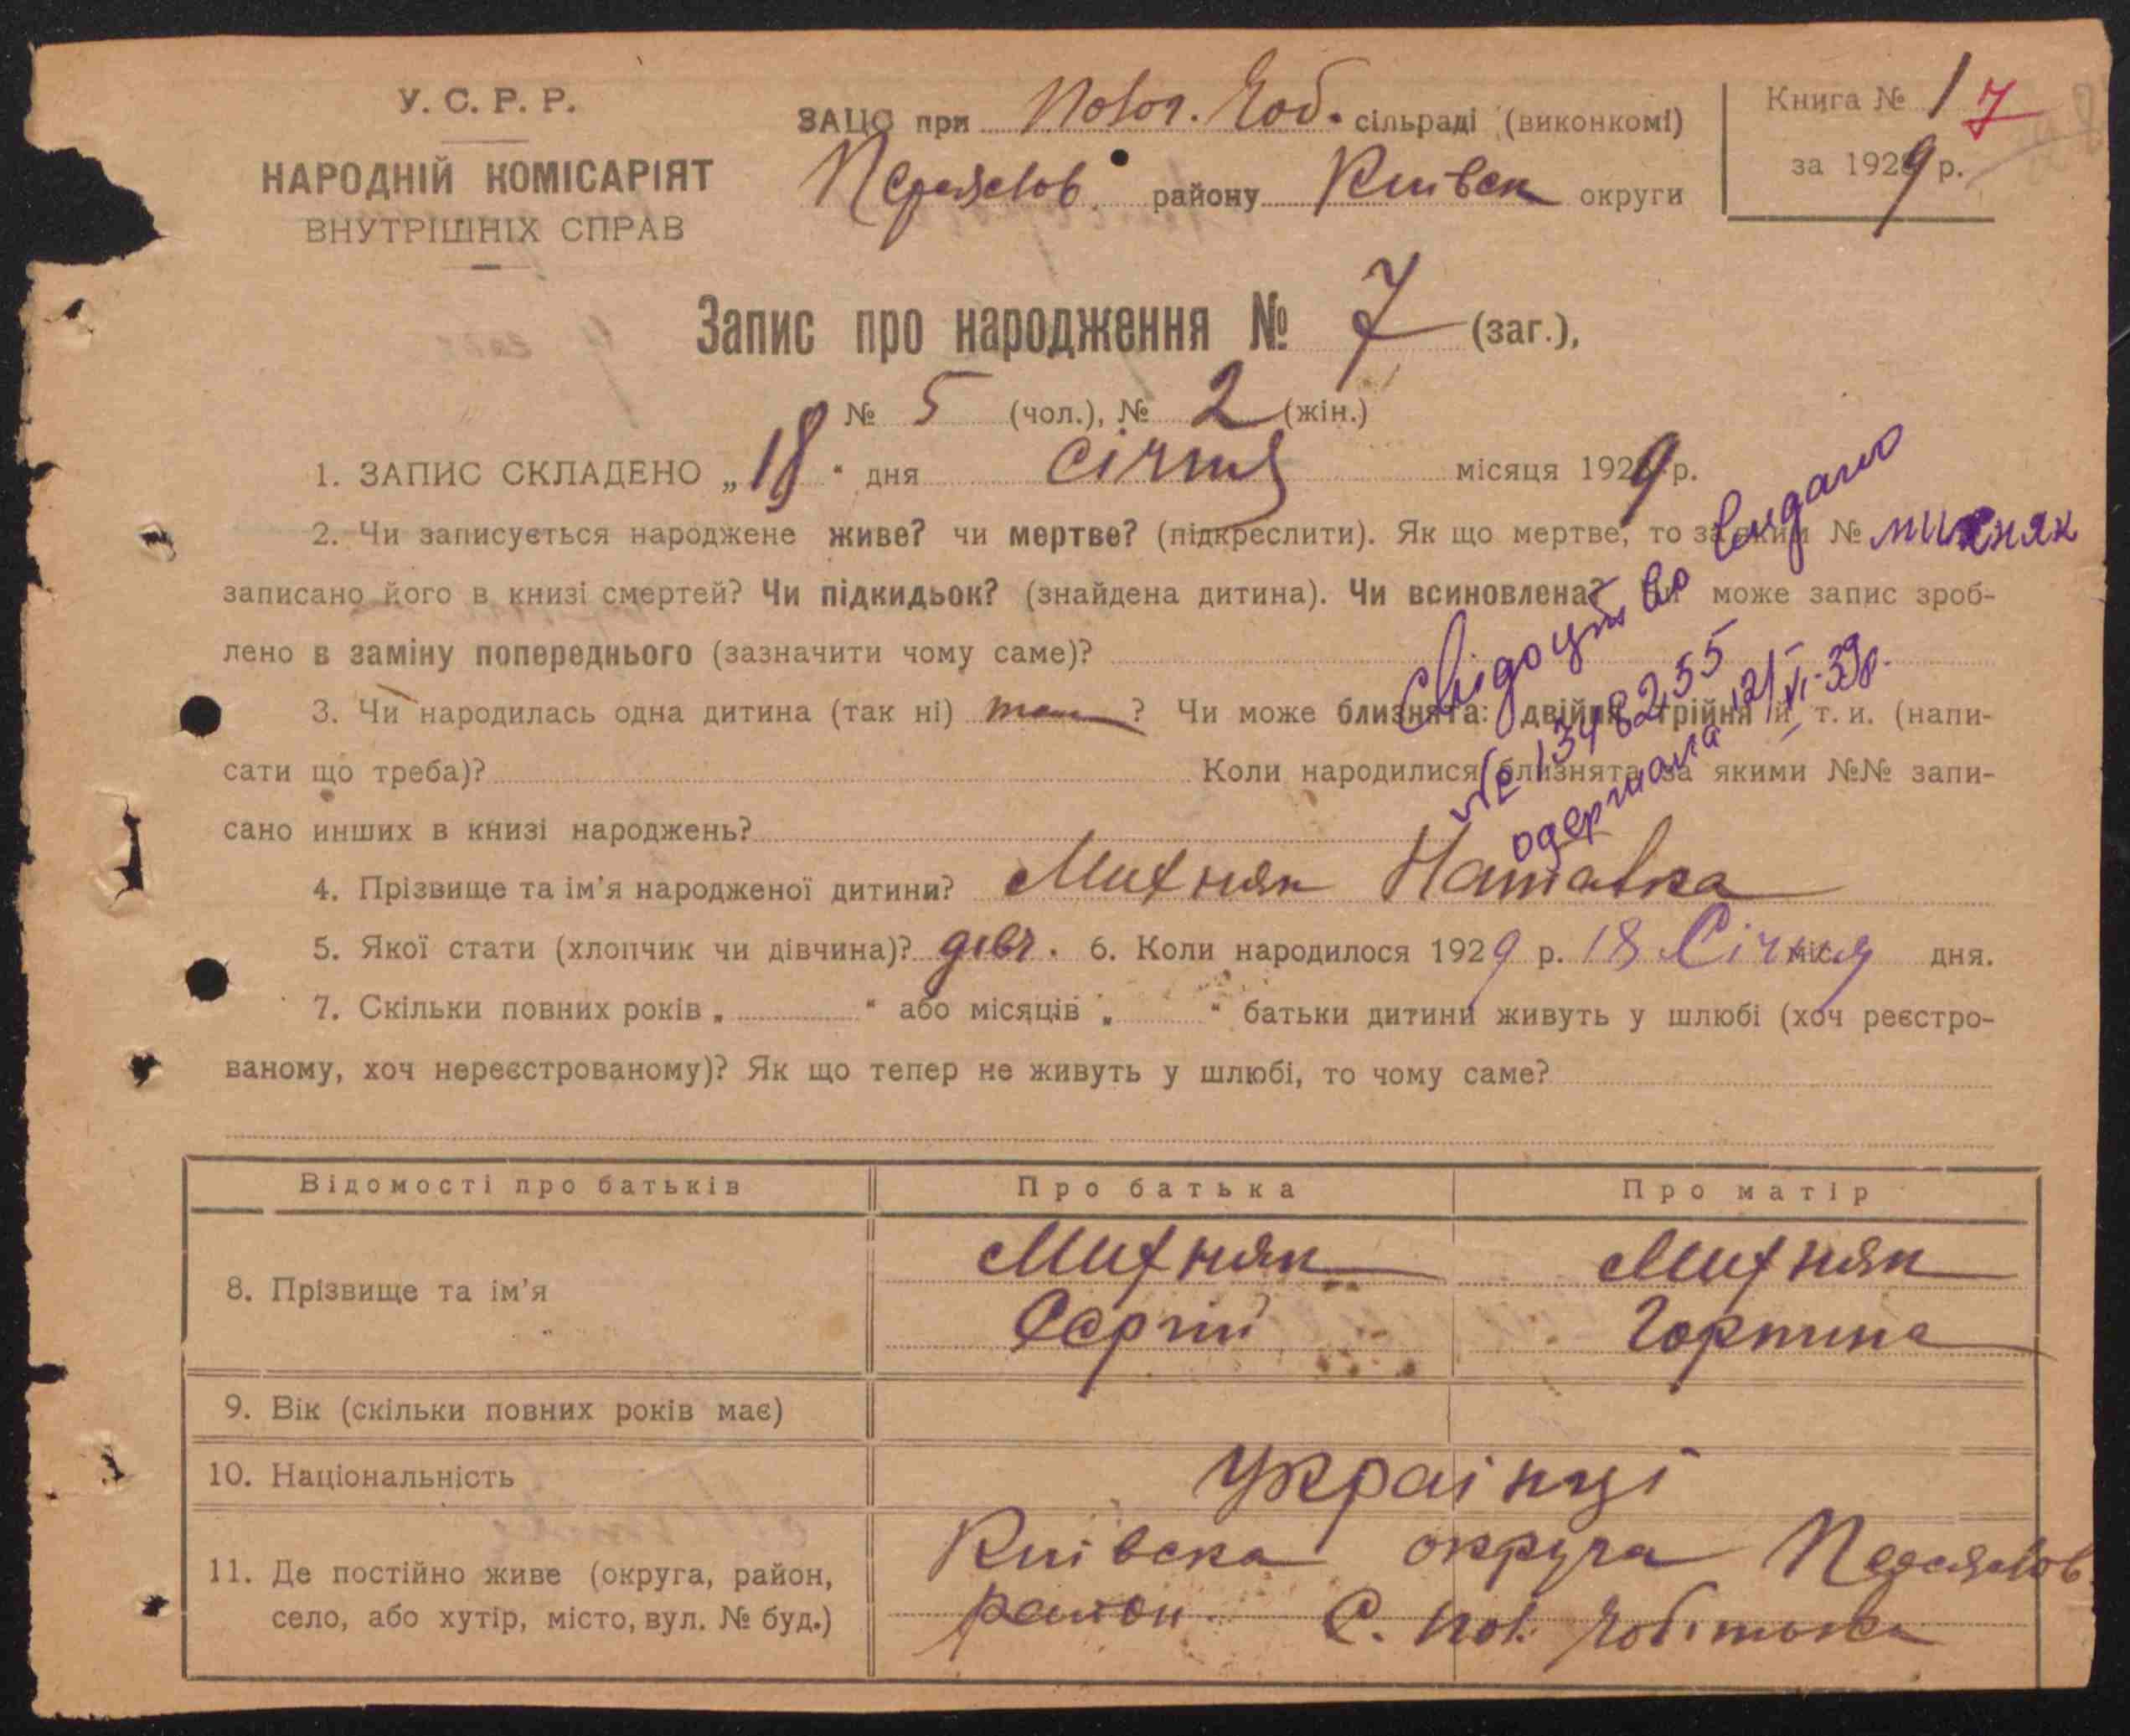 У. С. Р. Р.
НАРОДНІЙ КОМІСАРІЯТ
ВНУТРІШНІХ СПРАВ
ЗАЦС при сільраді (виконкомі)
Переяслов. району Київськ округи
Книга № 1 7
за 1929 р.
Запис про народження № 7 (заг.),
№ 5 (чол.), № 2 (жін.)
1. ЗАПИС СКЛАДЕНО „18“ дня січня місяця 1929 р.
2. Чи записується народжене живе? чи мертве? (підкреслити). Як що мертве, то за яким №
записано його в книзі смертей? Чи підкидьок? (знайдена дитина). Чи всиновлена? Чи може запис зроб-
лено в заміну попереднього (зазначити чому саме)?
3. Чи народилась одна дитина (так ні) так ? Чи може близнята: двійня, трійня й т. и. (напи-
сати що треба)? Коли народилися близнята за якими №№ запи-
сано инших в книзі народжень?
Свідоцтво видано
Михняк
№ 1348255
одержала 12/VI-39р.
4. Прізвище та ім’я народженої дитини? Михняк Наталка
5. Якої стати (хлопчик чи дівчина)? дівч. 6. Коли народилося 1929 р. 18 Січня міс. дня.
7. Скільки повних років „ “ або місяців „ “ батьки дитини живуть у шлюбі (хоч реєстро-
ваному, хоч нереєстрованому)? Як що тепер не живуть у шлюбі, то чому саме?
Відомості про батьків Про батька Про матір
8. Прізвище та ім’я Михняк Михняк
Сергій Горпина
9. Вік (скільки повних років має)
10. Національність Українці
11. Де постійно живе (округа, район,
село, або хутір, місто, вул. № буд.)
Київска округа Переяслов
район С.